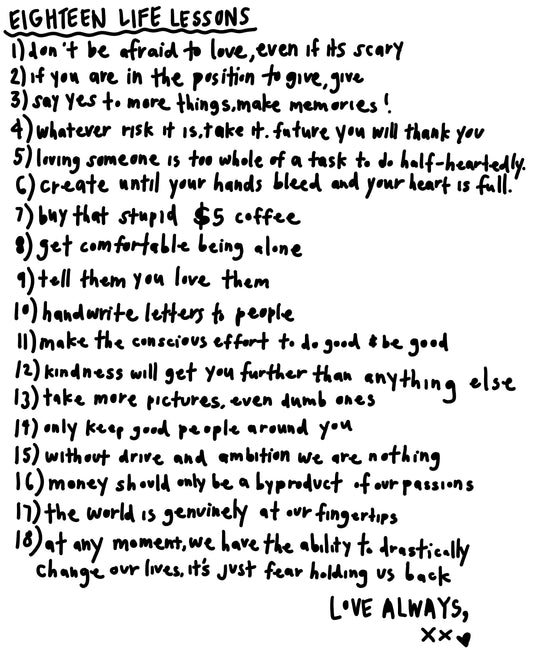 EIGHTEEN LIFE LESSONS
1) don't be afraid to love, even if its scary
2) if you are in the position to give, give
3) say yes to more things, make memories!
4) whatever risk it is, take it. future you will thank you
5) loving someone is too whole of a task to do half-heartedly.
6) create until your hands bleed and your heart is full.
7) buy that stupid $5 coffee
8) get comfortable being alone
9) tell them you love them
10) handwrite letters to people
11) make the conscious effort to do good & be good
12) kindness will get you further than anything else
13) take more pictures, even dumb ones
14) only keep good people around you
15) without drive and ambition we are nothing
16) money should only be a byproduct of our passions
17) the world is genuinely at our fingertips
18) at any moment, we have the ability to drastically
change our lives, it's just fear holding us back
LOVE ALWAYS,
xx ♥